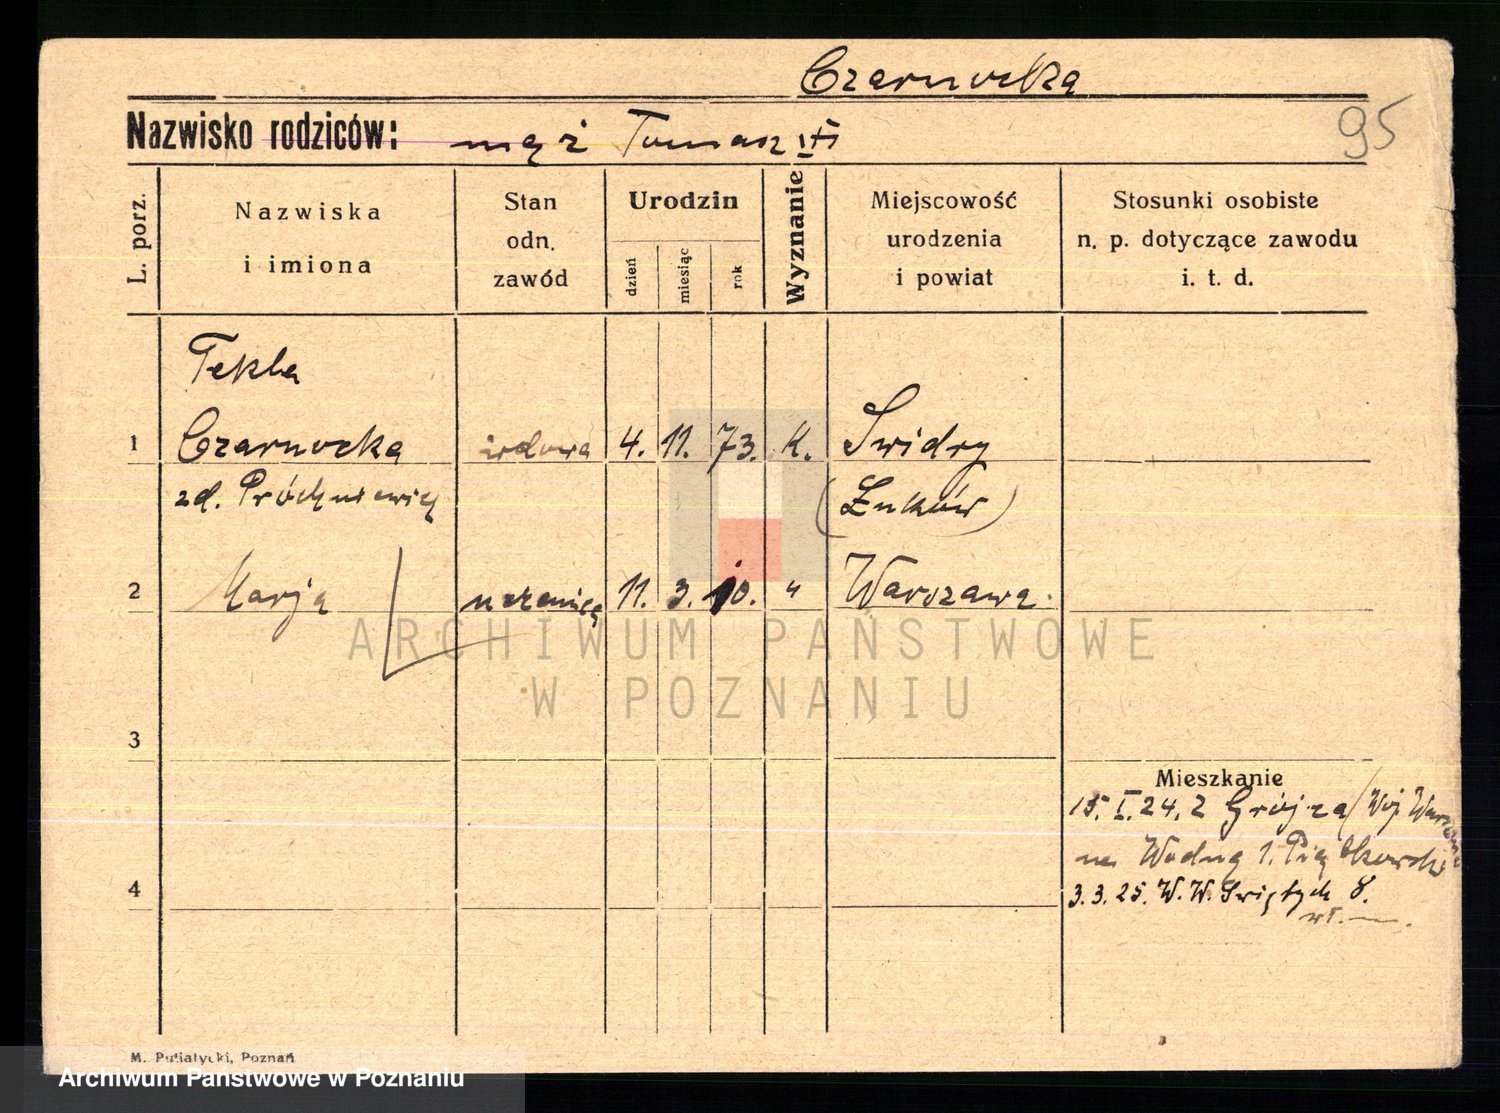 Czarnocka
Nazwisko rodziców: mąż Tomasz
95
L. porz.
Nazwiska
i imiona
Stan
odn.
zawód
Urodzin
dzień
miesiąc
rok
Wyznanie
Miejscowość
urodzenia
i powiat
Stosunki osobiste
n. p. dotyczące zawodu
i. t. d.
Tekla
1 Czarnocka wdowa 4. 11. 73. K. Swidry
zd. Próchniewicz (Łuków)
2 Marja uczenica 11. 3. 10. " Warszawa.
ARCHIWUM PAŃSTWOWE
W POZNANIU
3
Mieszkanie
15. I. 24. z Grójca (Woj. Warszawa
na Wodną 1. Piątkowski
4
3. 3. 25. W. W. Swiętych 8.
wł.
M. Putiatycki, Poznań
Archiwum Państwowe w Poznaniu